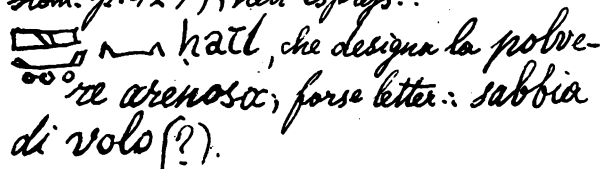 ḥatl, che designa la polve-
re arenosa; forse letter.: sabbia
di volo (?).